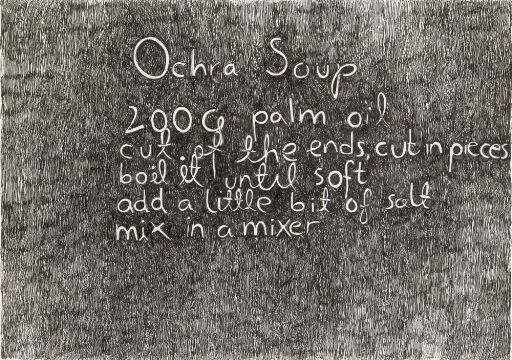 Ochra Soup
200g palm oil
cut of the ends, cut in pieces
boil it until soft
add a little bit of salt
mix in a mixer